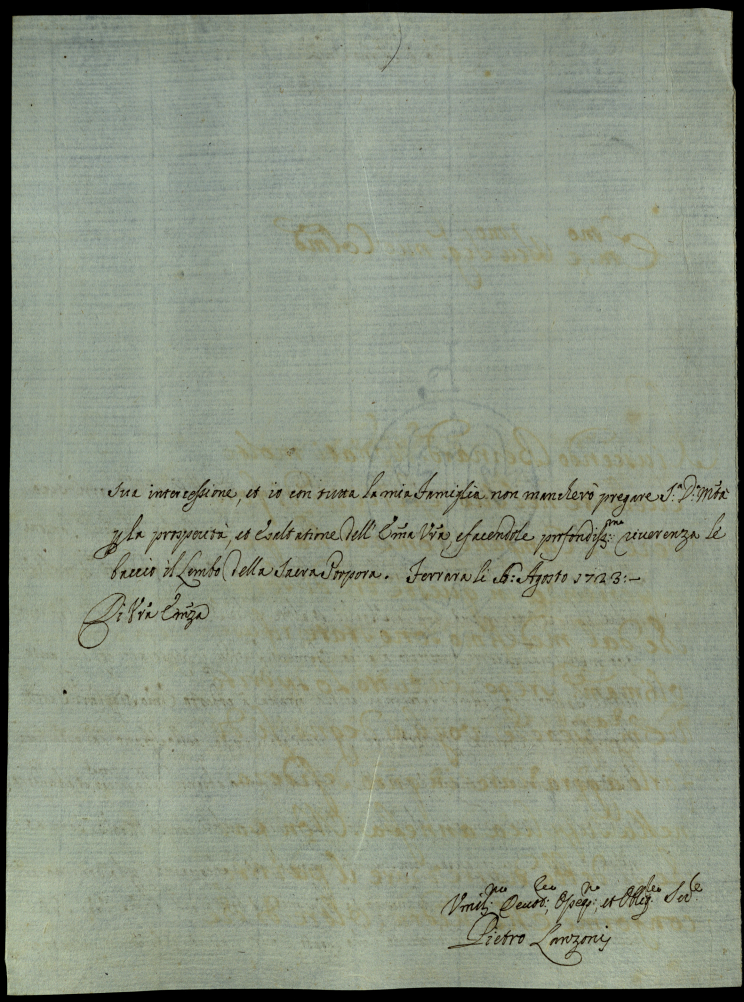 sua intercessione, et io con tutta la mia famiglia non mancherò pregare S.ª D: Mtà
p la prosperità, et Esaltatione dell' Emã Vrã, e facendole profondiss:ma riuerenza le
baccio il Lembo della Sacra Porpora. Ferrara li Agosto 1723:—
Di Vrã Emza
Vmil:mo Deuot: Osseq:mo et Oblig: Ser:
Pietro Lanzonij